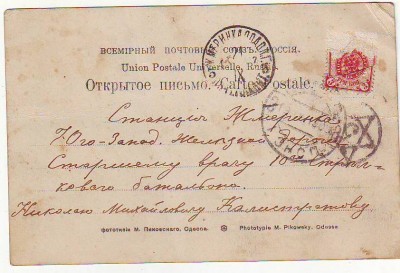 ВСЕМІРНЫЙ ПОЧТОВЫЙ СОЮЗЪ. РОССІЯ.
Union Postale Universelle, Russie.
Открытое письмо. Carte postale.
Станція Жмеринка
Юго-Запад. Желѣзной Дороги
Старшему врачу 10го Стрѣл-
коваго баталіона.
Николаю Михайловичу Калистратову
фототипія М. Пиковскаго, Одесса.
Phototypie M. Pikowsky, Odessa